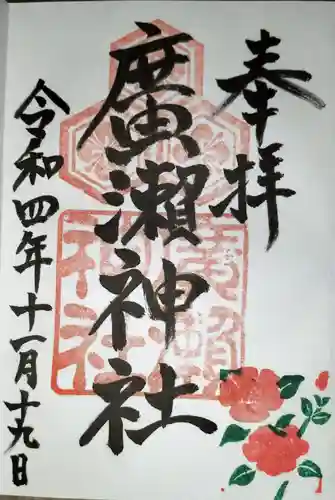 奉拝
廣瀬神社
令和四年十一月十九日
廣瀬神社